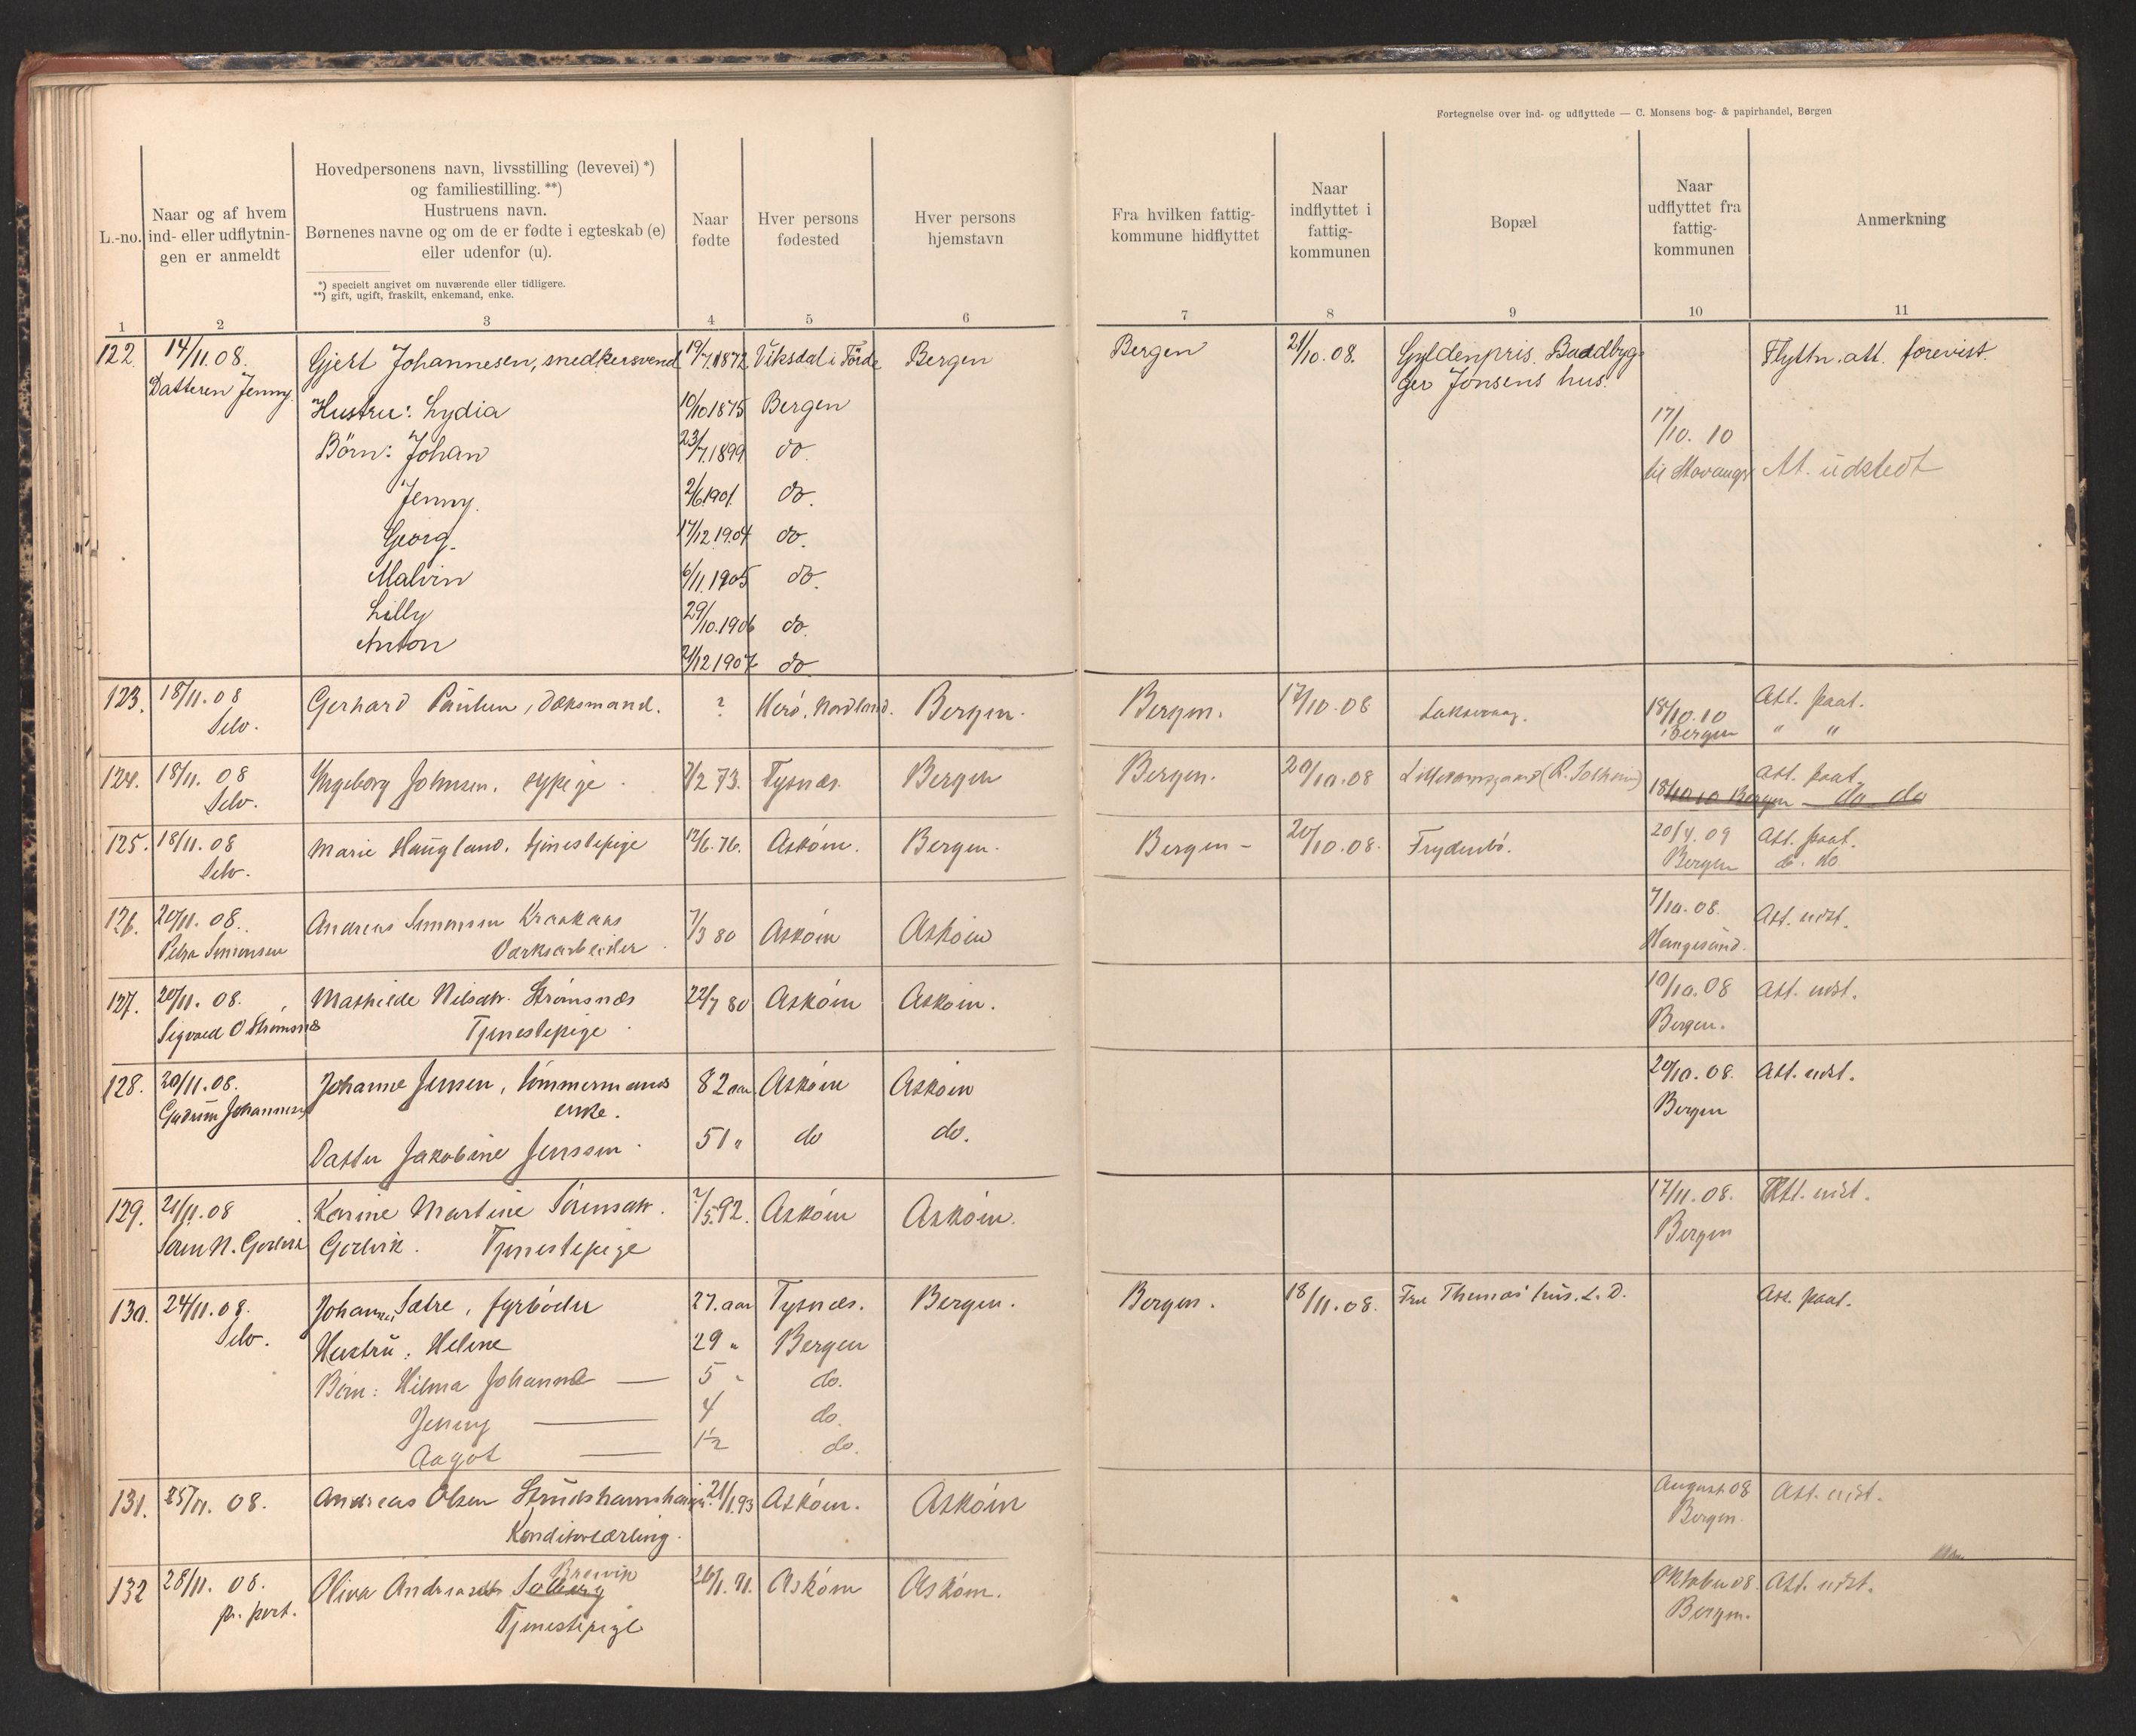 Fortegnelse over ind- og udflyttede — C. Monsens bog- & papirhandel, Bergen
L.-no.
Naar og af hvem
ind- eller udflytnin-
gen er anmeldt
Hovedpersonens navn, livsstilling (levevei) *)
og familiestilling. **)
Hustruens navn.
Børnenes navne og om de er fødte i egteskab (e)
eller udenfor (u).
*) specielt angivet om nuværende eller tidligere.
**) gift, ugift, fraskilt, enkemand, enke.
Naar
fødte
Hver persons
fødested
Hver persons
hjemstavn
Fra hvilken fattig-
kommune hidflyttet
Naar
indflyttet i
fattig-
kommunen
Bopæl
Naar
udflyttet fra
fattig-
kommunen
Anmerkning
1 2 3 4 5 6 7 8 9 10 11
122. 14/11.08. Gjert Johannesen, snedkersvend 19/7.1872 Viksdal i Förde Bergen Bergen 21/10.08. Gyldenpris. Baadbyg- Flyttn. att. forevist.
Datteren Jenny. ger Jonsens hus.
Hustru: Lydia 10/10 1875 Bergen
Börn: Johan 23/7.1899 do. 17/10. 10
til Stavanger At. udstedt
Jenny. 2/6.1901. do.
Georg. 17/12.1904 do.
Malvin 6/11.1905 do.
Lilly 29/10.1906 do.
Anton 21/12 1907 do
123. 18/11.08 Gerhard Paulsen, Dæksmand. ? Herö, Nordland. Bergen. Bergen. 17/10.08 Laksevaag. 18/10.10 Att. paat.
Selv. Bergen " "
124. 18/11. 08 Ingeborg Johnsen, sypige. 7/2 73. Tysnæs. Bergen Bergen. 20/10.08 (R. Solheim) Att. paat.
Selv. 18/10 10 Bergen do do
125. 18/11.08 Marie Haugland, tjenestepige 12/6.76. Askøin. Bergen. Bergen - 20/10.08. Frydenbö. 20/4.09 Att. paat.
Selv. Bergen do. do
126. 20/11. 08. Andreas Simonsen Kraakaas 7/3 80 Askøin Askøin 7/10.08. Att. udst.
Petra Simonsen Værksarbeider Haugesund.
127. 20/11. 08. Mathilde Nilsdtr. Strömsnæs 22/7 80 Askøin Askøin. 10/10.08 Att. udst.
Sigvald O Strömsnæs Tjenestepige Bergen.
128. 20/11.08. Johanne Jensen, tömmermands 82 aar Askøin Askøin 20/10.08. Att. udst.
Gudrun Johannesen enke. Bergen
Datter Jakobine Jenssen. 51 " do do.
129. 21/11.08 Karine Martine Sörensdtr. 7/5.92. Askøin Askøin. 17/11.08. Att. udst.
Sören N. Godvik Godvik. Tjenestepige Bergen
130. 24/11.08. Johannes Sætre, fyrböder 27. aar Tysnæs. Bergen. Bergen. 18/11.08. Fru Thomas' hus. L. D. Att. paat.
Selv. Hustru: Helene 29 " Bergen
Börn: Hilma Johanna — 5 " do.
Jenny — 4 do.
Aagot — 1½ do.
131. 25/11. 08. Andreas Olsen 21/1.93 Askøin. Askøin August 08 Att. udst.
Konditorlærling. Bergen.
Breivik
132 28/11. 08. Oliva Andreasdtr. Solberg 26/1.91. Askøin Askøin. Oktober 08. Att. udst.
pr. port. Tjenestepige Bergen.